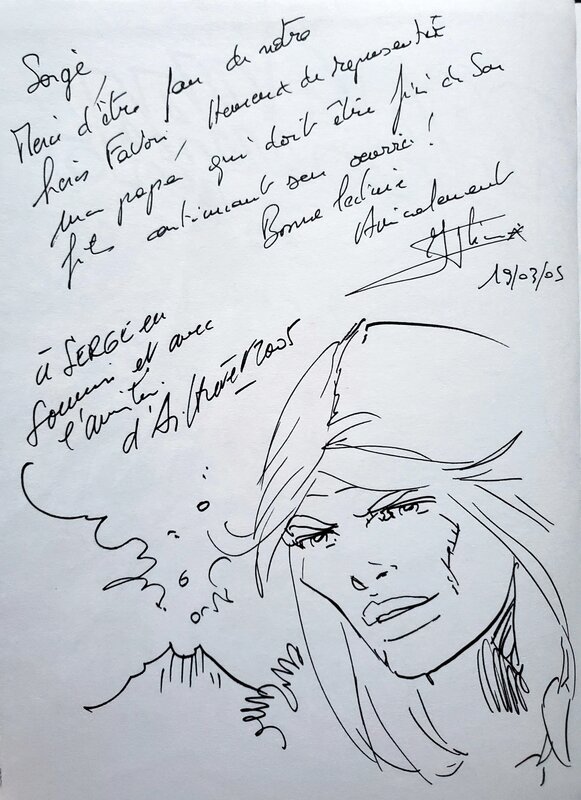 Sergé,
Merci d'être fan de notre
héros Favori Heureux de représenter
mon papa, qui doit être fier de son
fils continuant son oeuvre !
Bonne lecture
Amicalement
19/03/05
à SERGE en
Souvenir et avec
l'amitié
d'A. 2005